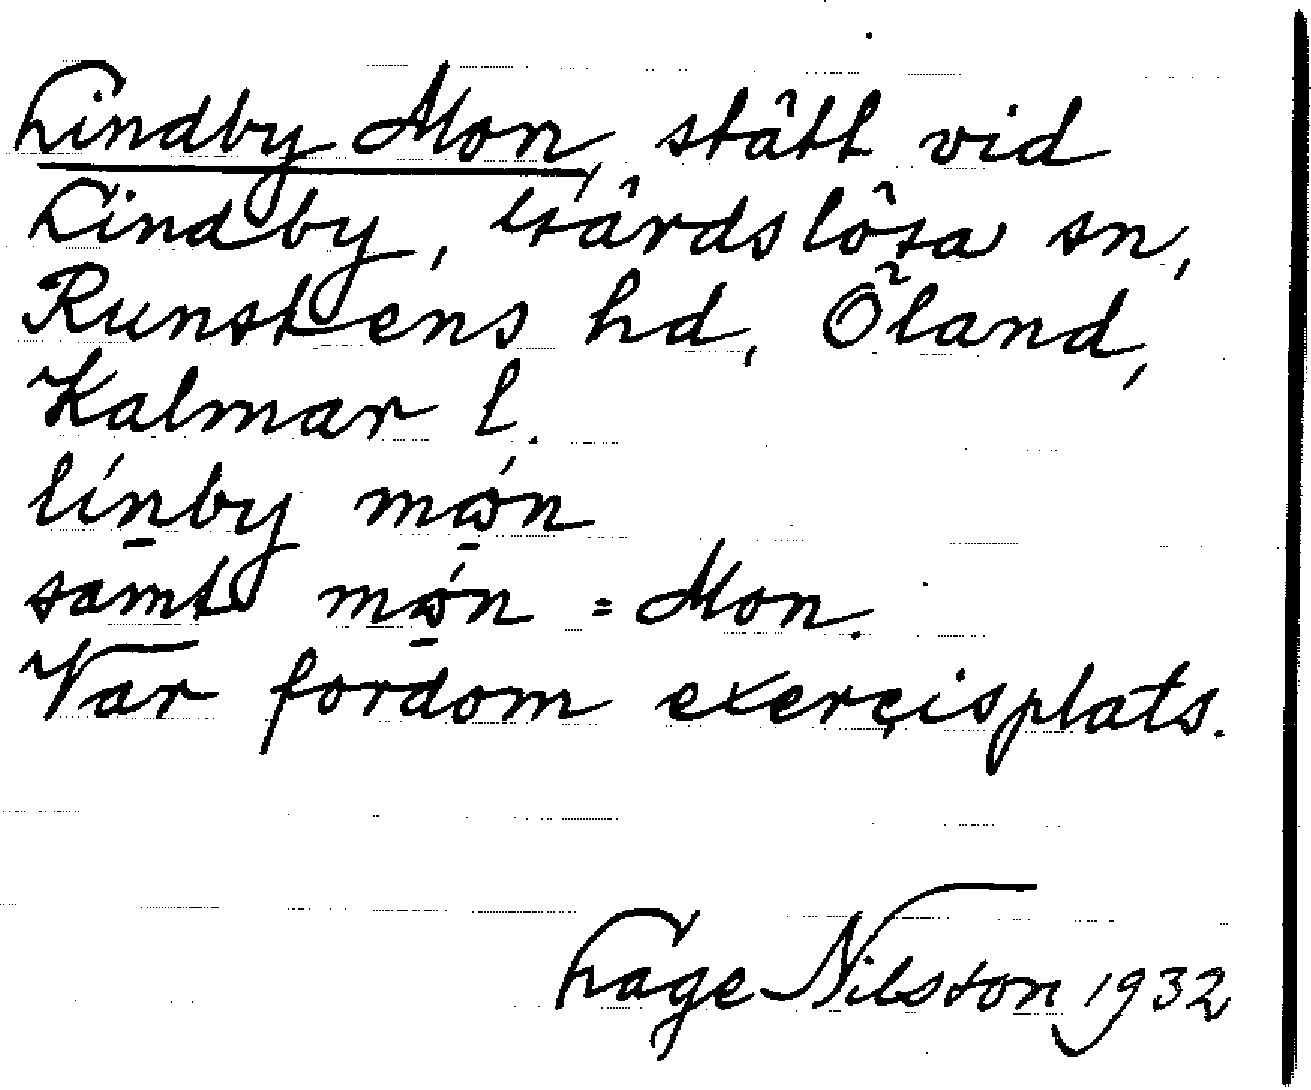 Lindby Mon, slätt vid
Lindby, Gärdslösa sn,
Runstens hd, Öland,
Kalmar l.
línby mǫ́n
samt mǫ́n = Mon.
Var fordom exercisplats.
Lage Nilsson 1932